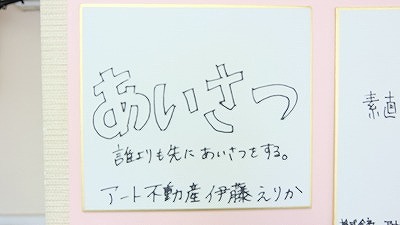 あいさつ
誰よりも先にあいさつをする。
アート不動産 伊藤えりか
素直